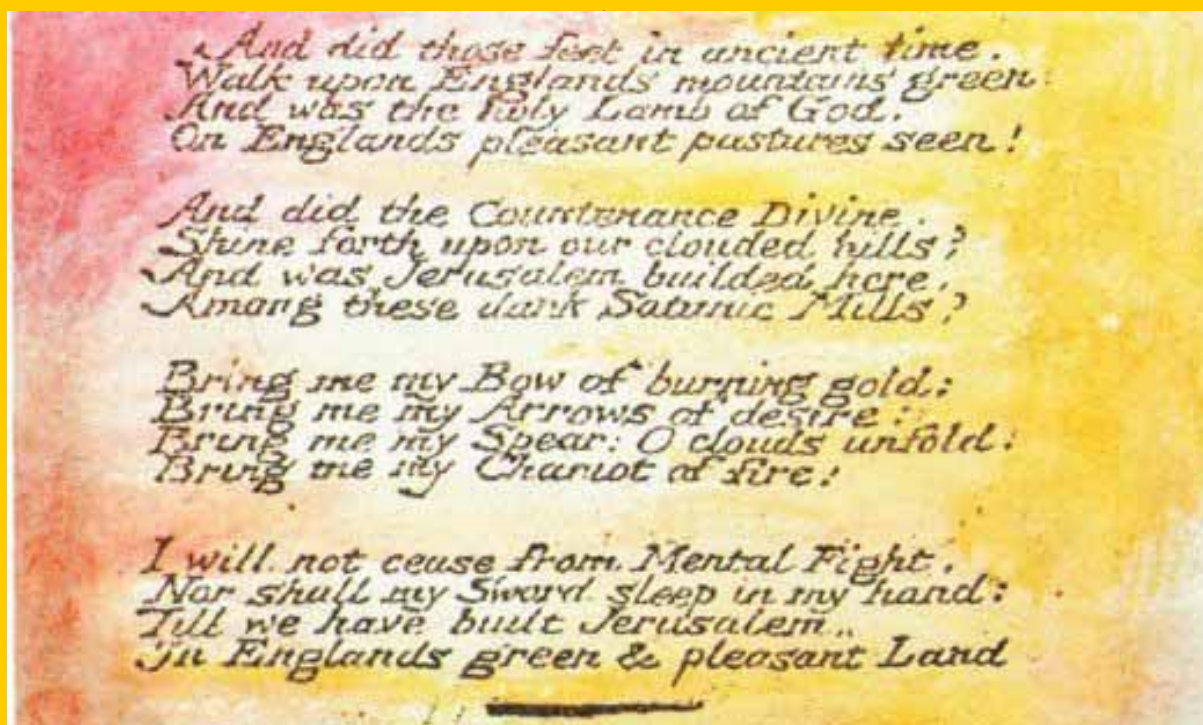 And did those feet in ancient time.
Walk upon Englands mountains green:
And was the holy Lamb of God.
On Englands pleasant pastures seen!
And did the Countenance Divine.
Shine forth upon our clouded hills?
And was Jerusalem builded here.
Among these dark Satanic Mills?
Bring me my Bow of burning gold:
Bring me my Arrows of desire:
Bring me my Spear: O clouds unfold!
Bring me my Chariot of fire!
I will not cease from Mental Fight.
Nor shall my Sword sleep in my hand:
Till we have built Jerusalem..
In Englands green & pleasant Land